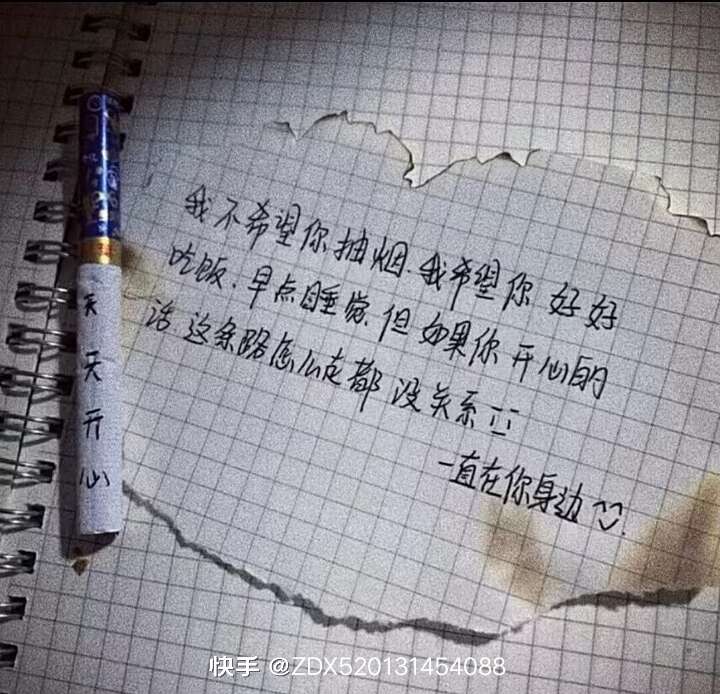 我不希望你抽烟.我希望你 好好
吃饭.早点睡觉.但如果你开心的
话 这条路怎么走都没关系
一直在你身边
天天开心
快手 @ZDX520131454088